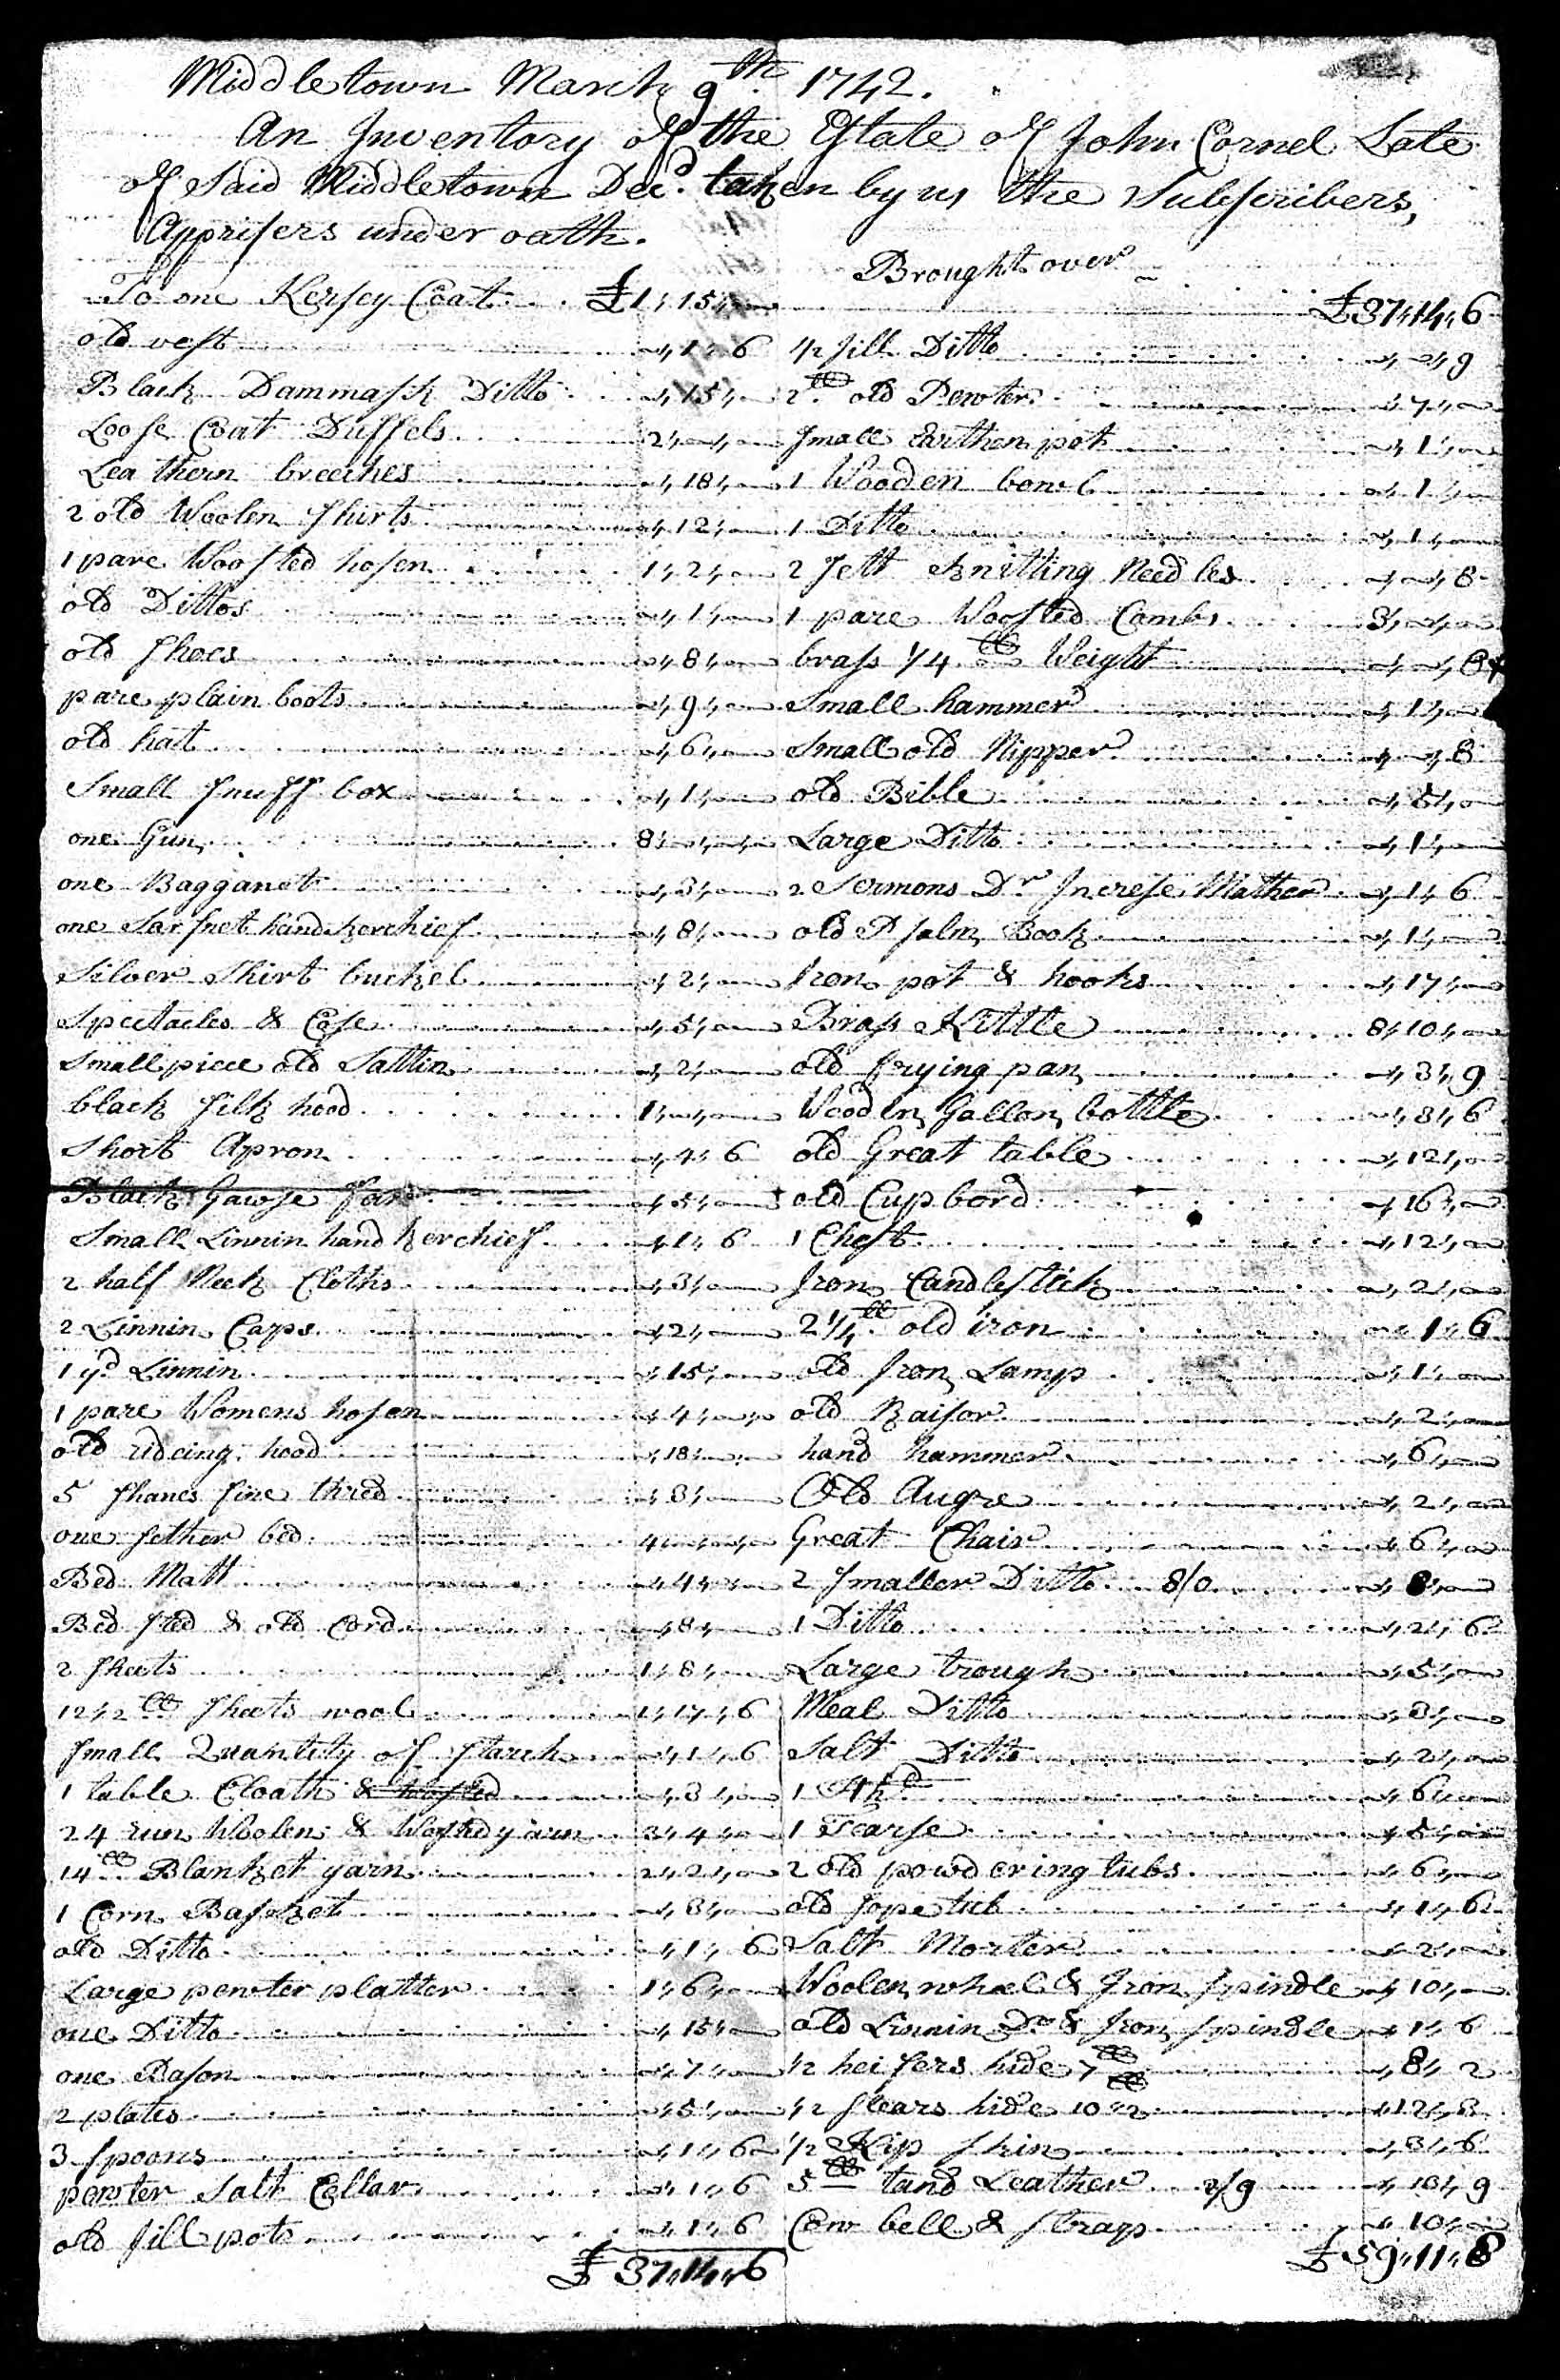 Middletown March 9th 1742.
An Inventory of the Estate of John Cornel Late
of Said Middletown Decd. taken by us the Subscribers,
Apprisers under oath.
To one Kersey Coat £1,,15,,—
old vest —,,1,,6
Black Dammask Ditto —,,15,,—
Loose Coat Duffels 2,,—,,—
Leathern breeches —,,18,,—
2 old Woolen Shirts —,,12,,—
1 pare Woosted hosen 1,,2,,—
old Dittos —,,1,,—
old Shoes —,,8,,—
pare plain boots —,,9,,—
old hat —,,6,,—
Small Snuff box —,,1,,—
one Gun 8,,—,,—
one Bagganet —,,3,,—
one Sarsnet handkerchief —,,8,,—
Silver Shirt buckel —,,2,,—
Spectacles & Case —,,5,,—
Small piece old Sattin —,,2,,—
black Silk hood 1,,—,,—
Short Apron —,,4,,6
Black Gawse Fan —,,5,,—
Small Linnin handkerchief —,,1,,6
2 half Neck Cloths —,,3,,—
2 Linnin Caps —,,2,,—
1 yd Linnin —,,15,,—
1 pare Womens hosen —,,4,,—
old rideing hood —,,18,,—
5 Skanes fine thred —,,3,,—
one fether bed 4,,—,,—
Bed Matt —,,4,,—
Bed Sted & old Cord —,,8,,—
2 Sheets 1,,8,,—
12 1/2 lb Sheets wool 1,,17,,6
Small Quantity of Starch —,,1,,6
1 table Cloath & —,,3,,—
24 run Woolen & Wosted yarn 3,,4,,—
14 lb Blanket yarn 2,,2,,—
1 Corn Basket —,,3,,—
old Ditto —,,1,,6
Large pewter platter 1,,6,,—
one Ditto —,,15,,—
one Bason —,,7,,—
2 plates —,,5,,—
3 Spoons —,,1,,6
pewter Salt Cellar —,,1,,6
old Jill pots —,,1,,6
£37,,14,,6
Brought over
£37,,14,,6
1/2 Jill Ditto —,,—,,9
2 lb old Pewter —,,7,,—
Small Earthen pot —,,1,,—
1 Wooden bowl —,,1,,—
1 Ditto —,,1,,—
2 Sett Knitting Needles —,,—,,8
1 pare Woosted Combs 3,,—,,—
brass 1/4 lb Weight —,,—,,8
Small hammer —,,1,,—
Small old Nipper —,,—,,8
old Bible —,,5,,—
Large Ditto —,,1,,—
2 Sermons Dr Increse Mather —,,1,,6
old Psalm Book —,,1,,—
Iron pot & hooks —,,17,,—
Brass Kittle 8,,10,,—
old frying pan —,,3,,9
Wooden Gallon bottle —,,3,,6
old Great table —,,12,,—
old Cupbord —,,16,,—
1 Chest —,,12,,—
Iron Candlestick —,,2,,—
2 1/4 lb old iron —,,1,,6
old Iron Lamp —,,1,,—
old Raisor —,,2,,—
hand hammer —,,6,,—
Old Augre —,,2,,—
Great Chair —,,6,,—
2 Smaller Ditto 8/0 —,,8,,—
1 Ditto —,,2,,6
Large trough —,,5,,—
Meal Ditto —,,3,,—
Salt Ditto —,,2,,—
1 Hhd —,,6,,—
1 Tearse —,,5,,—
2 old powdering tubs —,,6,,—
old Sope tub —,,1,,6
Salt Morter —,,2,,—
Woolen wheel & Iron Spindle —,,10,,—
old Linnin Do & Iron Spindle —,,1,,6
1/2 heifers hide 7 lb —,,8,,2
1/2 Stears hide 10 1/2 —,,12,,3
1/2 Kip Skin —,,3,,6
5 lb tand Leather 2/9 —,,13,,9
Cow bell & Strap —,,10,,—
£59,,11,,8